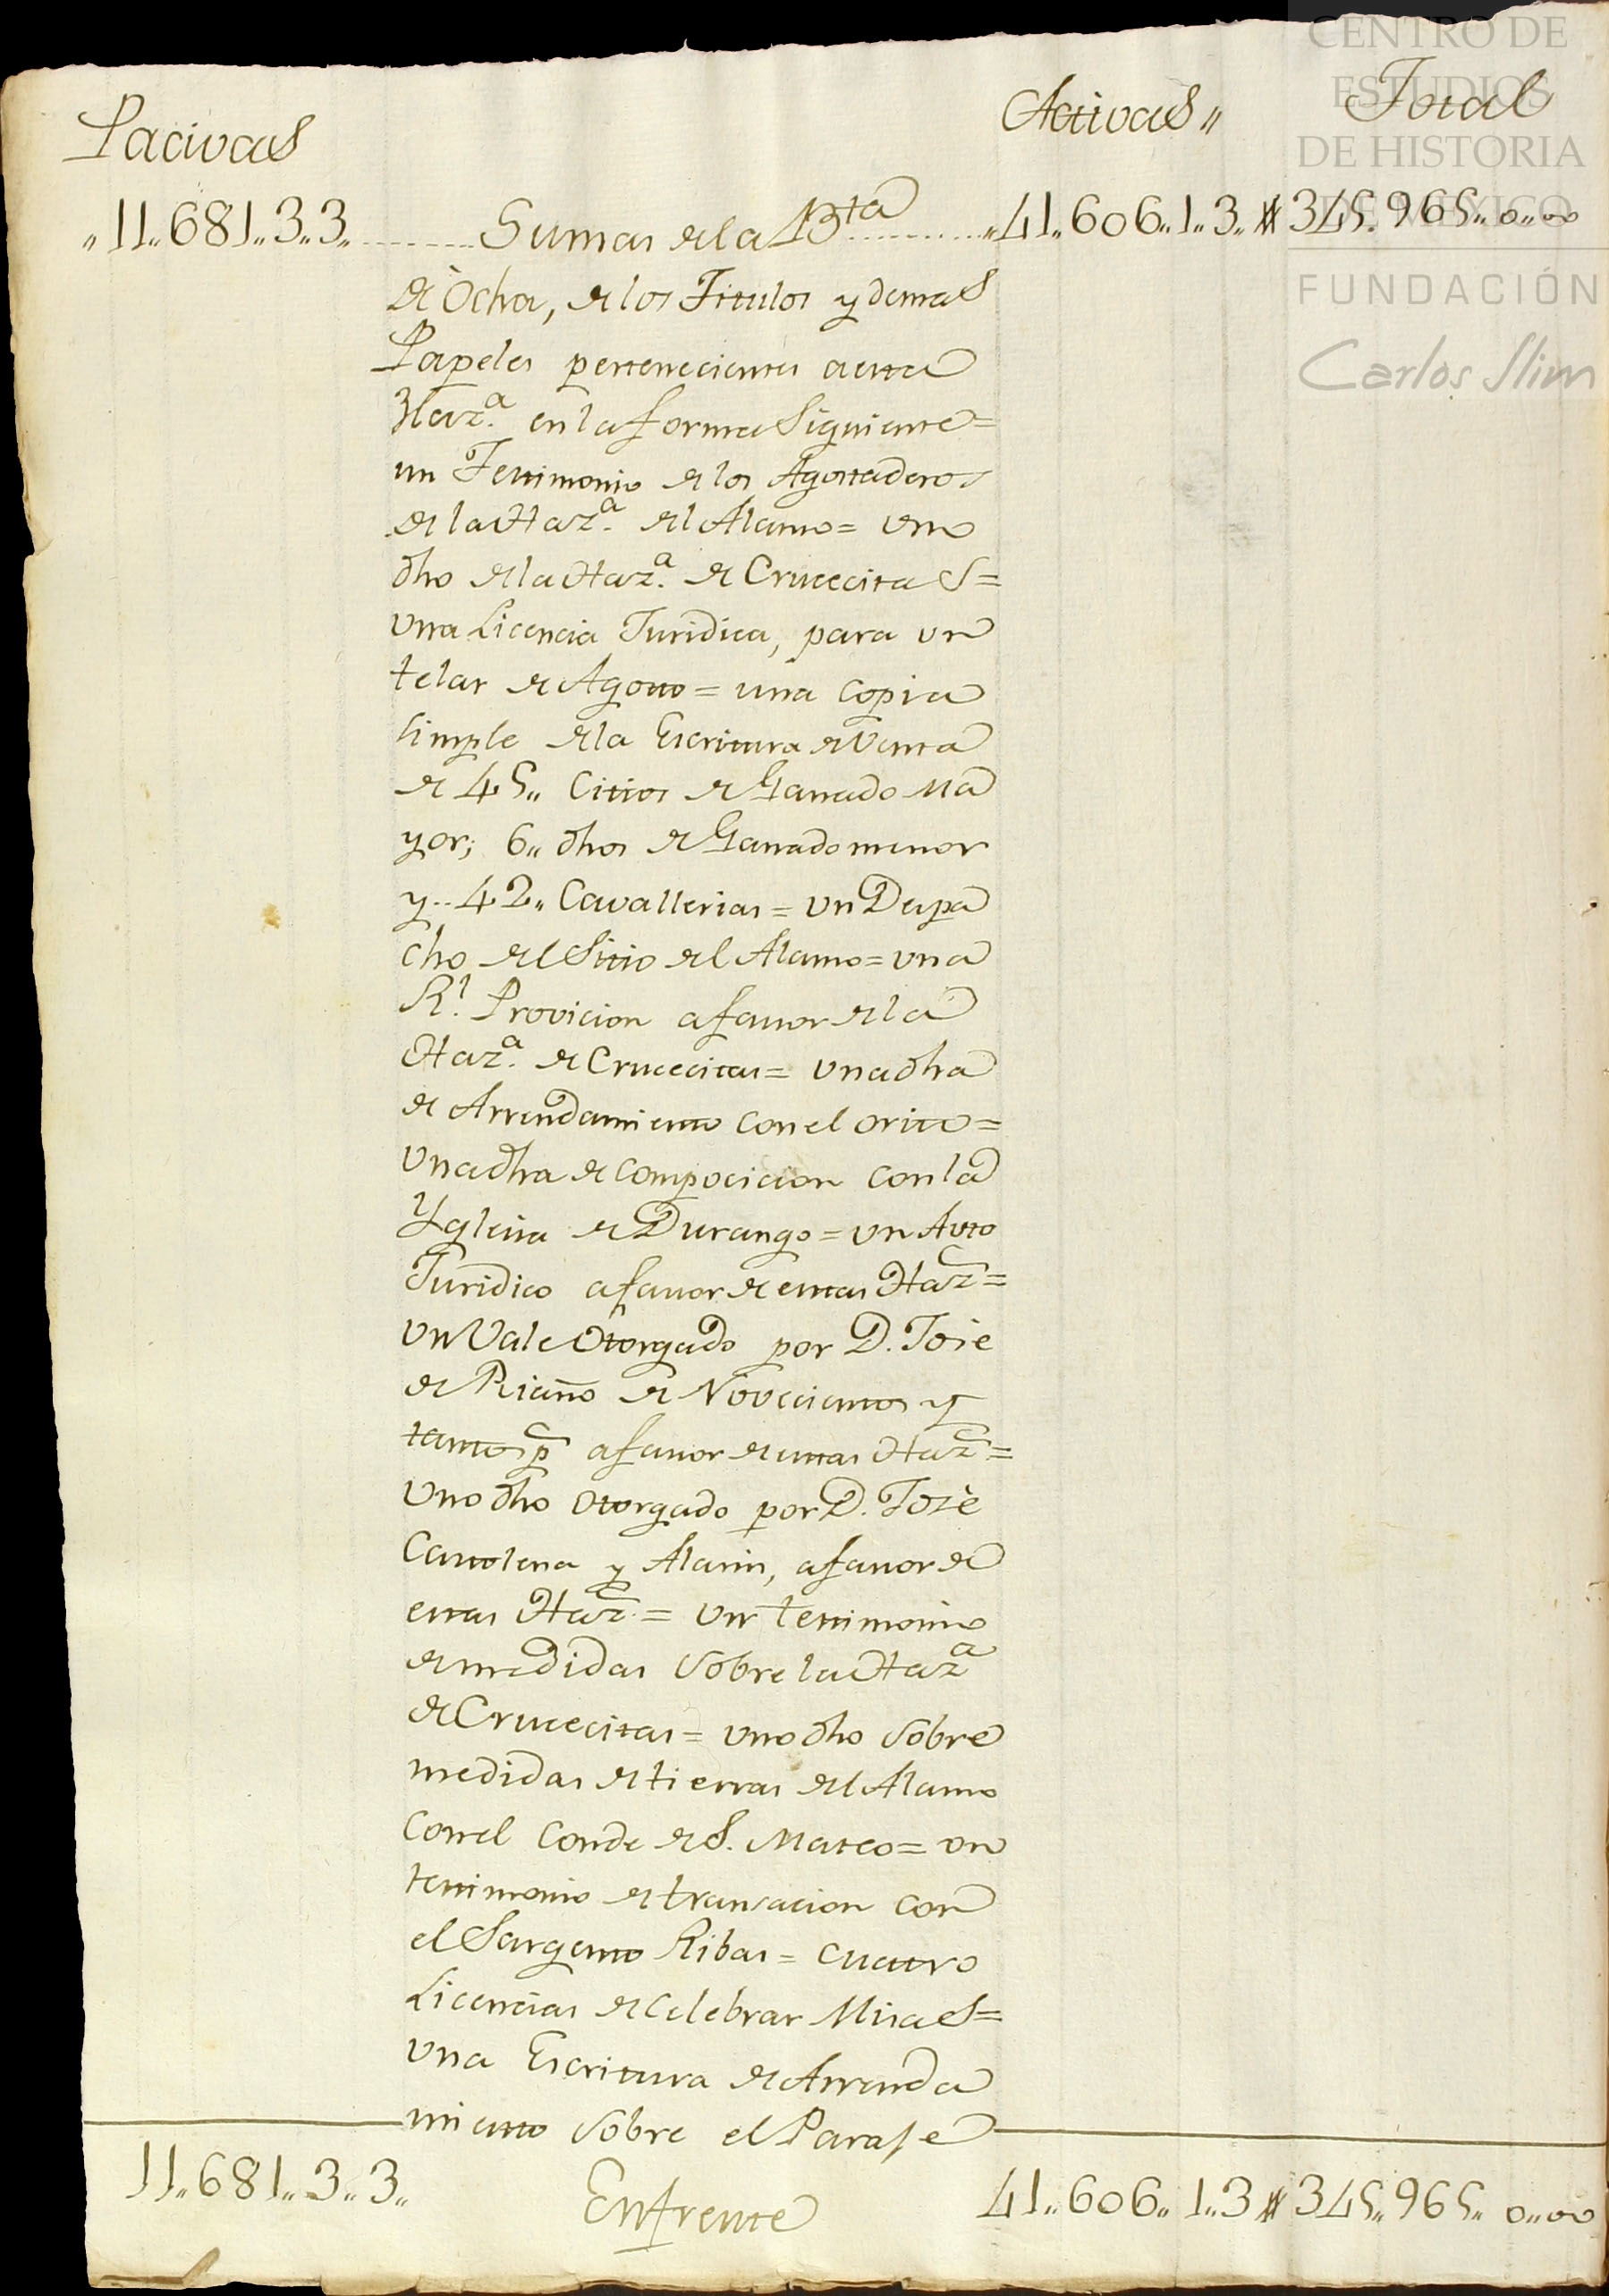 CENTRO DE
ESTUDIOS
DE HISTORIA
DE MÉXICO
FUNDACIÓN
Carlos Slim
Pacivas Activas,, Total
,,11,,681,,3,,3,, Sumas de la B.ta ,,41,,606,,1,,3,,# 345,,965,,0,,00
de Ochoa, de los Titulos y demas
Papeles pertenecientes a esta
Haz.a en la forma Siguiente=
un Testimonio de los Agostaderos
de la Haz.a del Alamo= uno
dho de la Haz.a de Crucecitas=
una Licencia Juridica, para un
telar de Agosto= una Copia
simple de la Escritura de Venta
de 45,, Citios de Ganado Ma
yor; 6,, dhos de Ganado menor
y.. 42,, Cavallerias= un Despa
cho del Sitio del Alamo= una
R.l Provicion a favor de la
Haz.a de Crucecitas= una dha
de Arrendamiento con el orito=
una dha de compocicion con la
Yglesia de Durango= un Auto
Juridico a favor de estas Haz.s=
un Vale Otorgado por D. Jose
de Riaño de Novecientos y
tantos p.s a favor de estas Haz.s=
uno dho Otorgado por D. José
y Alarin, a favor de
estas Haz.s= un testimonio
de medidas sobre la Haz.a
de Crucecitas= uno dho sobre
medidas de tierras del Alamo
con el Conde de S. Mateo= un
testimonio de transacion con
el Sargento Ribas= cuatro
Licencias de Celebrar Misas=
una Escritura de Arrenda
miento sobre el Paraje
11,,681,,3,,3,, Enfrente 41,,606,,1,,3 # 345,,965,,0,,00